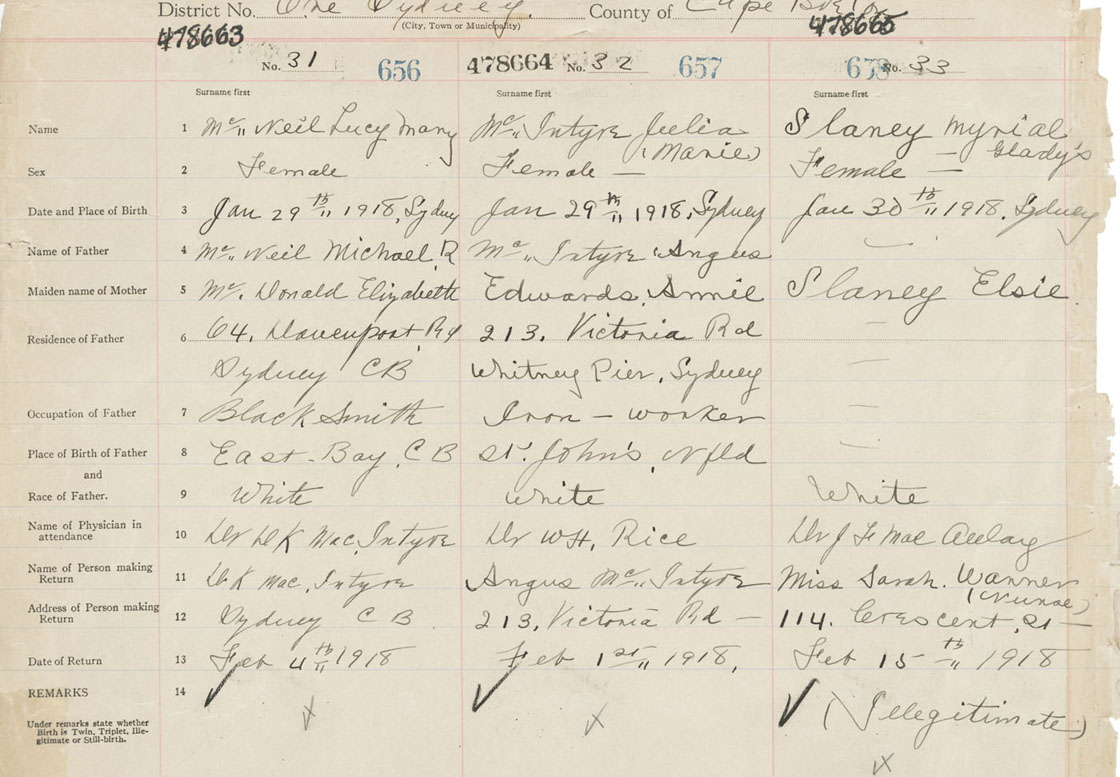 District No. One Sydney. County of Cape Breton
(City, Town or Municipality)
478663 478665
No. 31 656 478664 No. 32 657 658 No. 33
Surname first Surname first Surname first
Name 1 Mc" Neil Lucy Mary Mc" Intyre Julia Slaney Myrial
(Marie) Glady's
Sex 2 Female Female — Female —
Date and Place of Birth 3 Jan 29th" 1918, Sydney Jan 29th" 1918, Sydney Jan 30th" 1918. Sydney
Name of Father 4 Mc" Neil Michael R Mc" Intyre Angus —
Maiden name of Mother 5 Mc. Donald Elizabeth Edwards, Annie Slaney Elsie.
Residence of Father 6 64. Davenport Rd 213. Victoria Rd —
Sydney CB Whitney Pier, Sydney —
Occupation of Father 7 Black Smith Iron - worker —
Place of Birth of Father 8 East-Bay, CB St. John's, Nfld —
and
Race of Father. 9 White White White
Name of Physician in
attendance 10 Dr DK Mac, Intyre Dr WH, Rice Dr J F Mac Aulay
Name of Person making
Return 11 DK Mac, Intyre Angus Mc" Intyre Miss Sarah. Wanner
(Nurse)
Address of Person making
Return 12 Sydney CB. 213, Victoria Rd — 114. Crescent, St —
Date of Return 13 Feb 4th" 1918 Feb 1st" 1918, Feb 15th" 1918
REMARKS 14 ✓ ✓ ✓ (Illegitimate)
Under remarks state whether
Birth is Twin, Triplet, Ille-
gitimate or Still-birth.